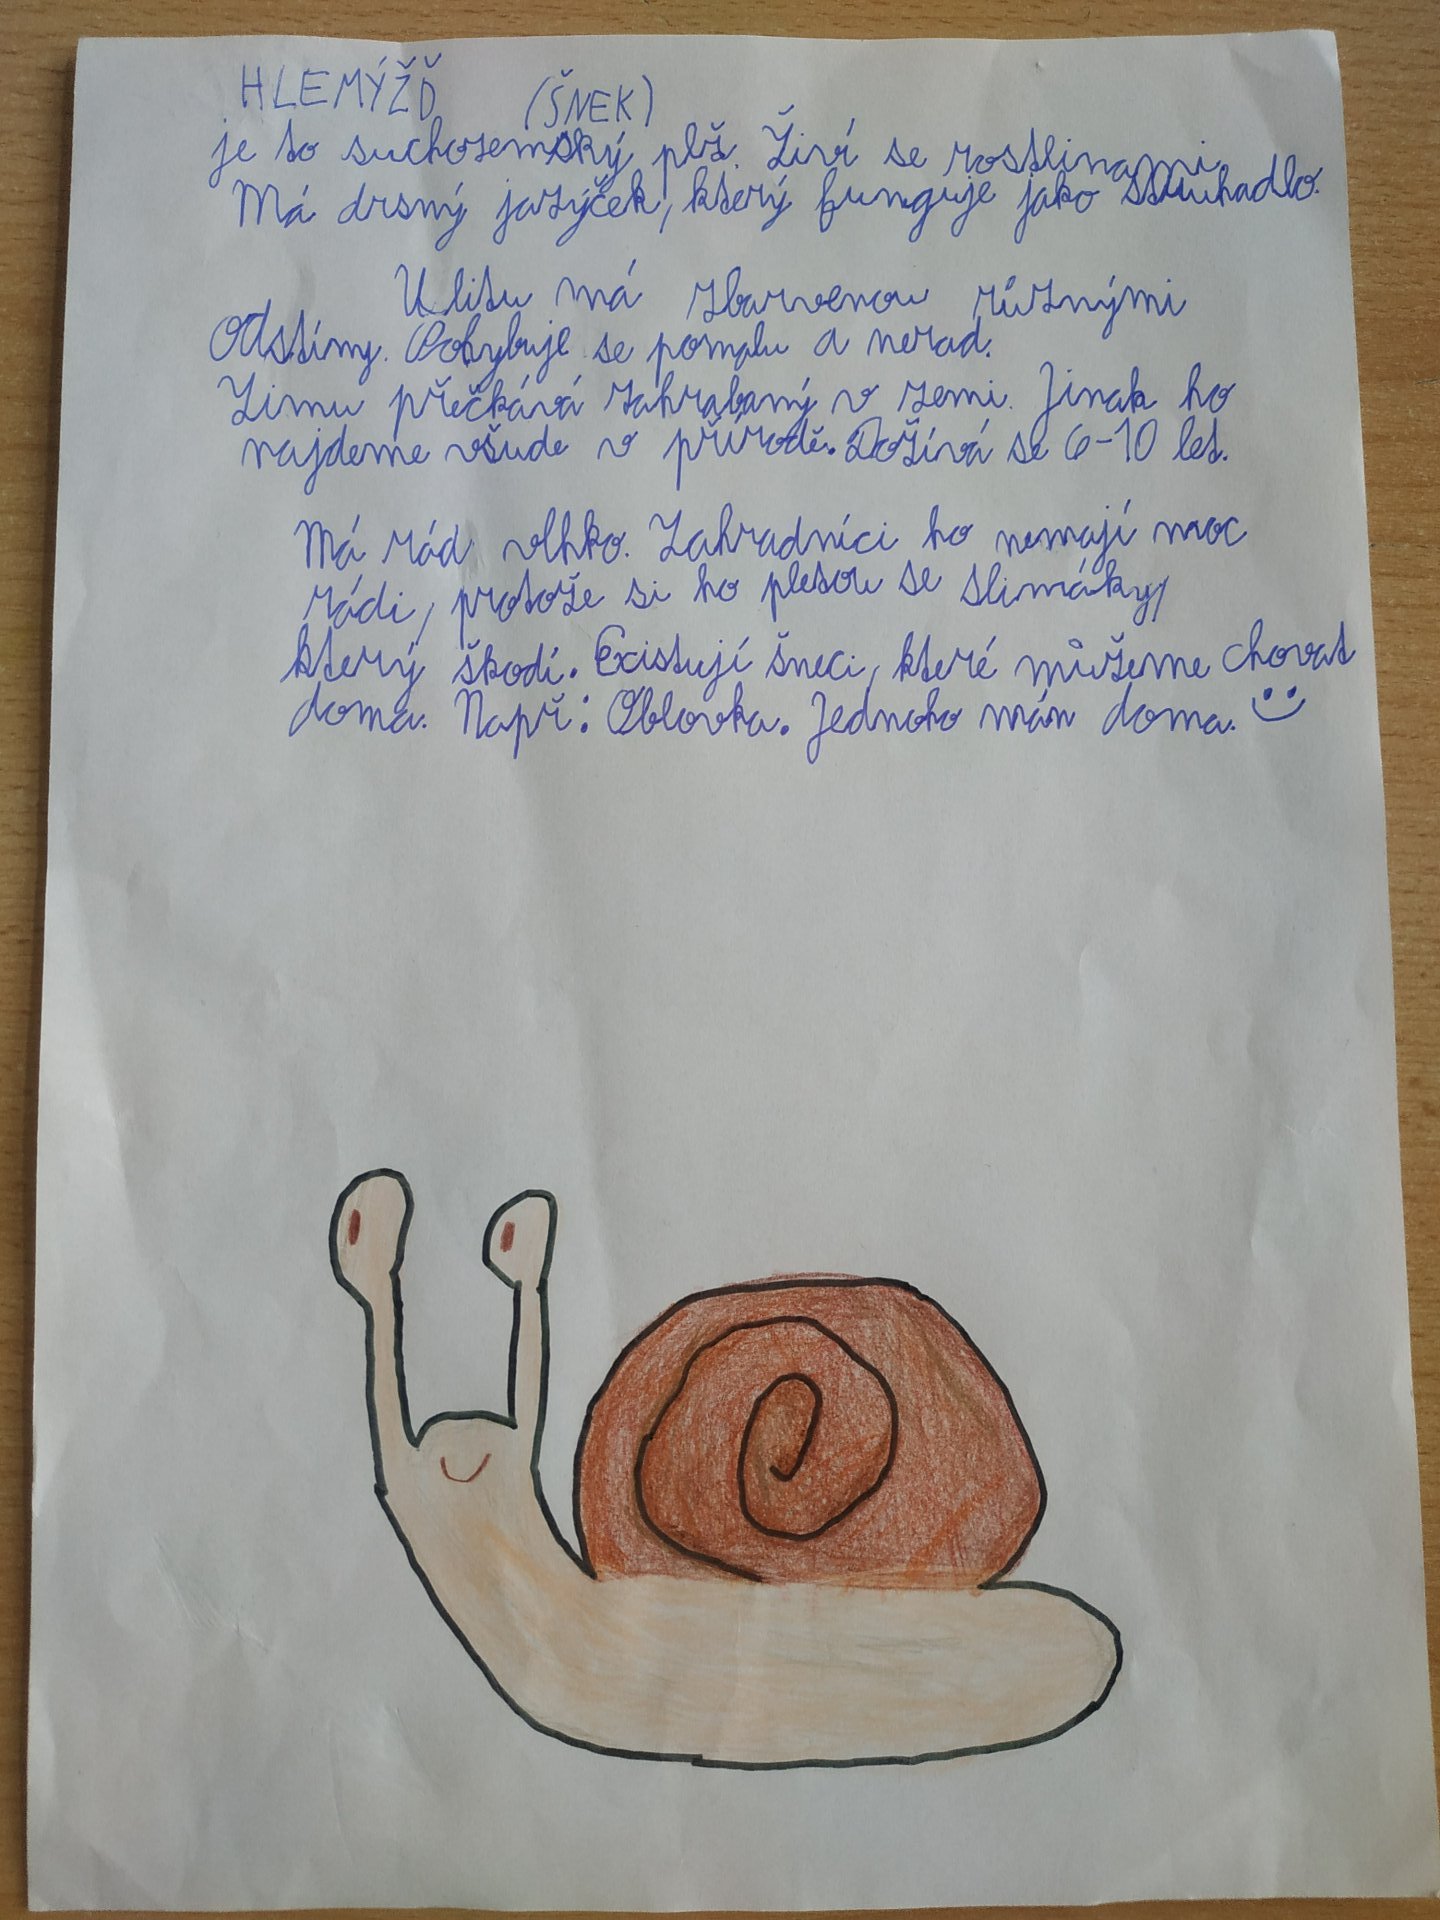 HLEMÝŽĎ (ŠNEK)
je to suchozemský plž. Živí se rostlinami
Má drsný jazýček, který funguje jako struhadlo.
Ulitu má zbarvenou různými
Odstíny. Pohybuje se pomalu a nerad.
Zimu přečkává zahrabaný v zemi. Jinak ho
najdeme všude v přírodě. Dožívá se 6-10 let.
Má rád vlhko. Zahradníci ho nemají moc
rádi, protože si ho pletou se slimáky,
který škodí. Existují šneci, které můžeme chovat
doma. Např: Oblovka. Jednoho mám doma. :)